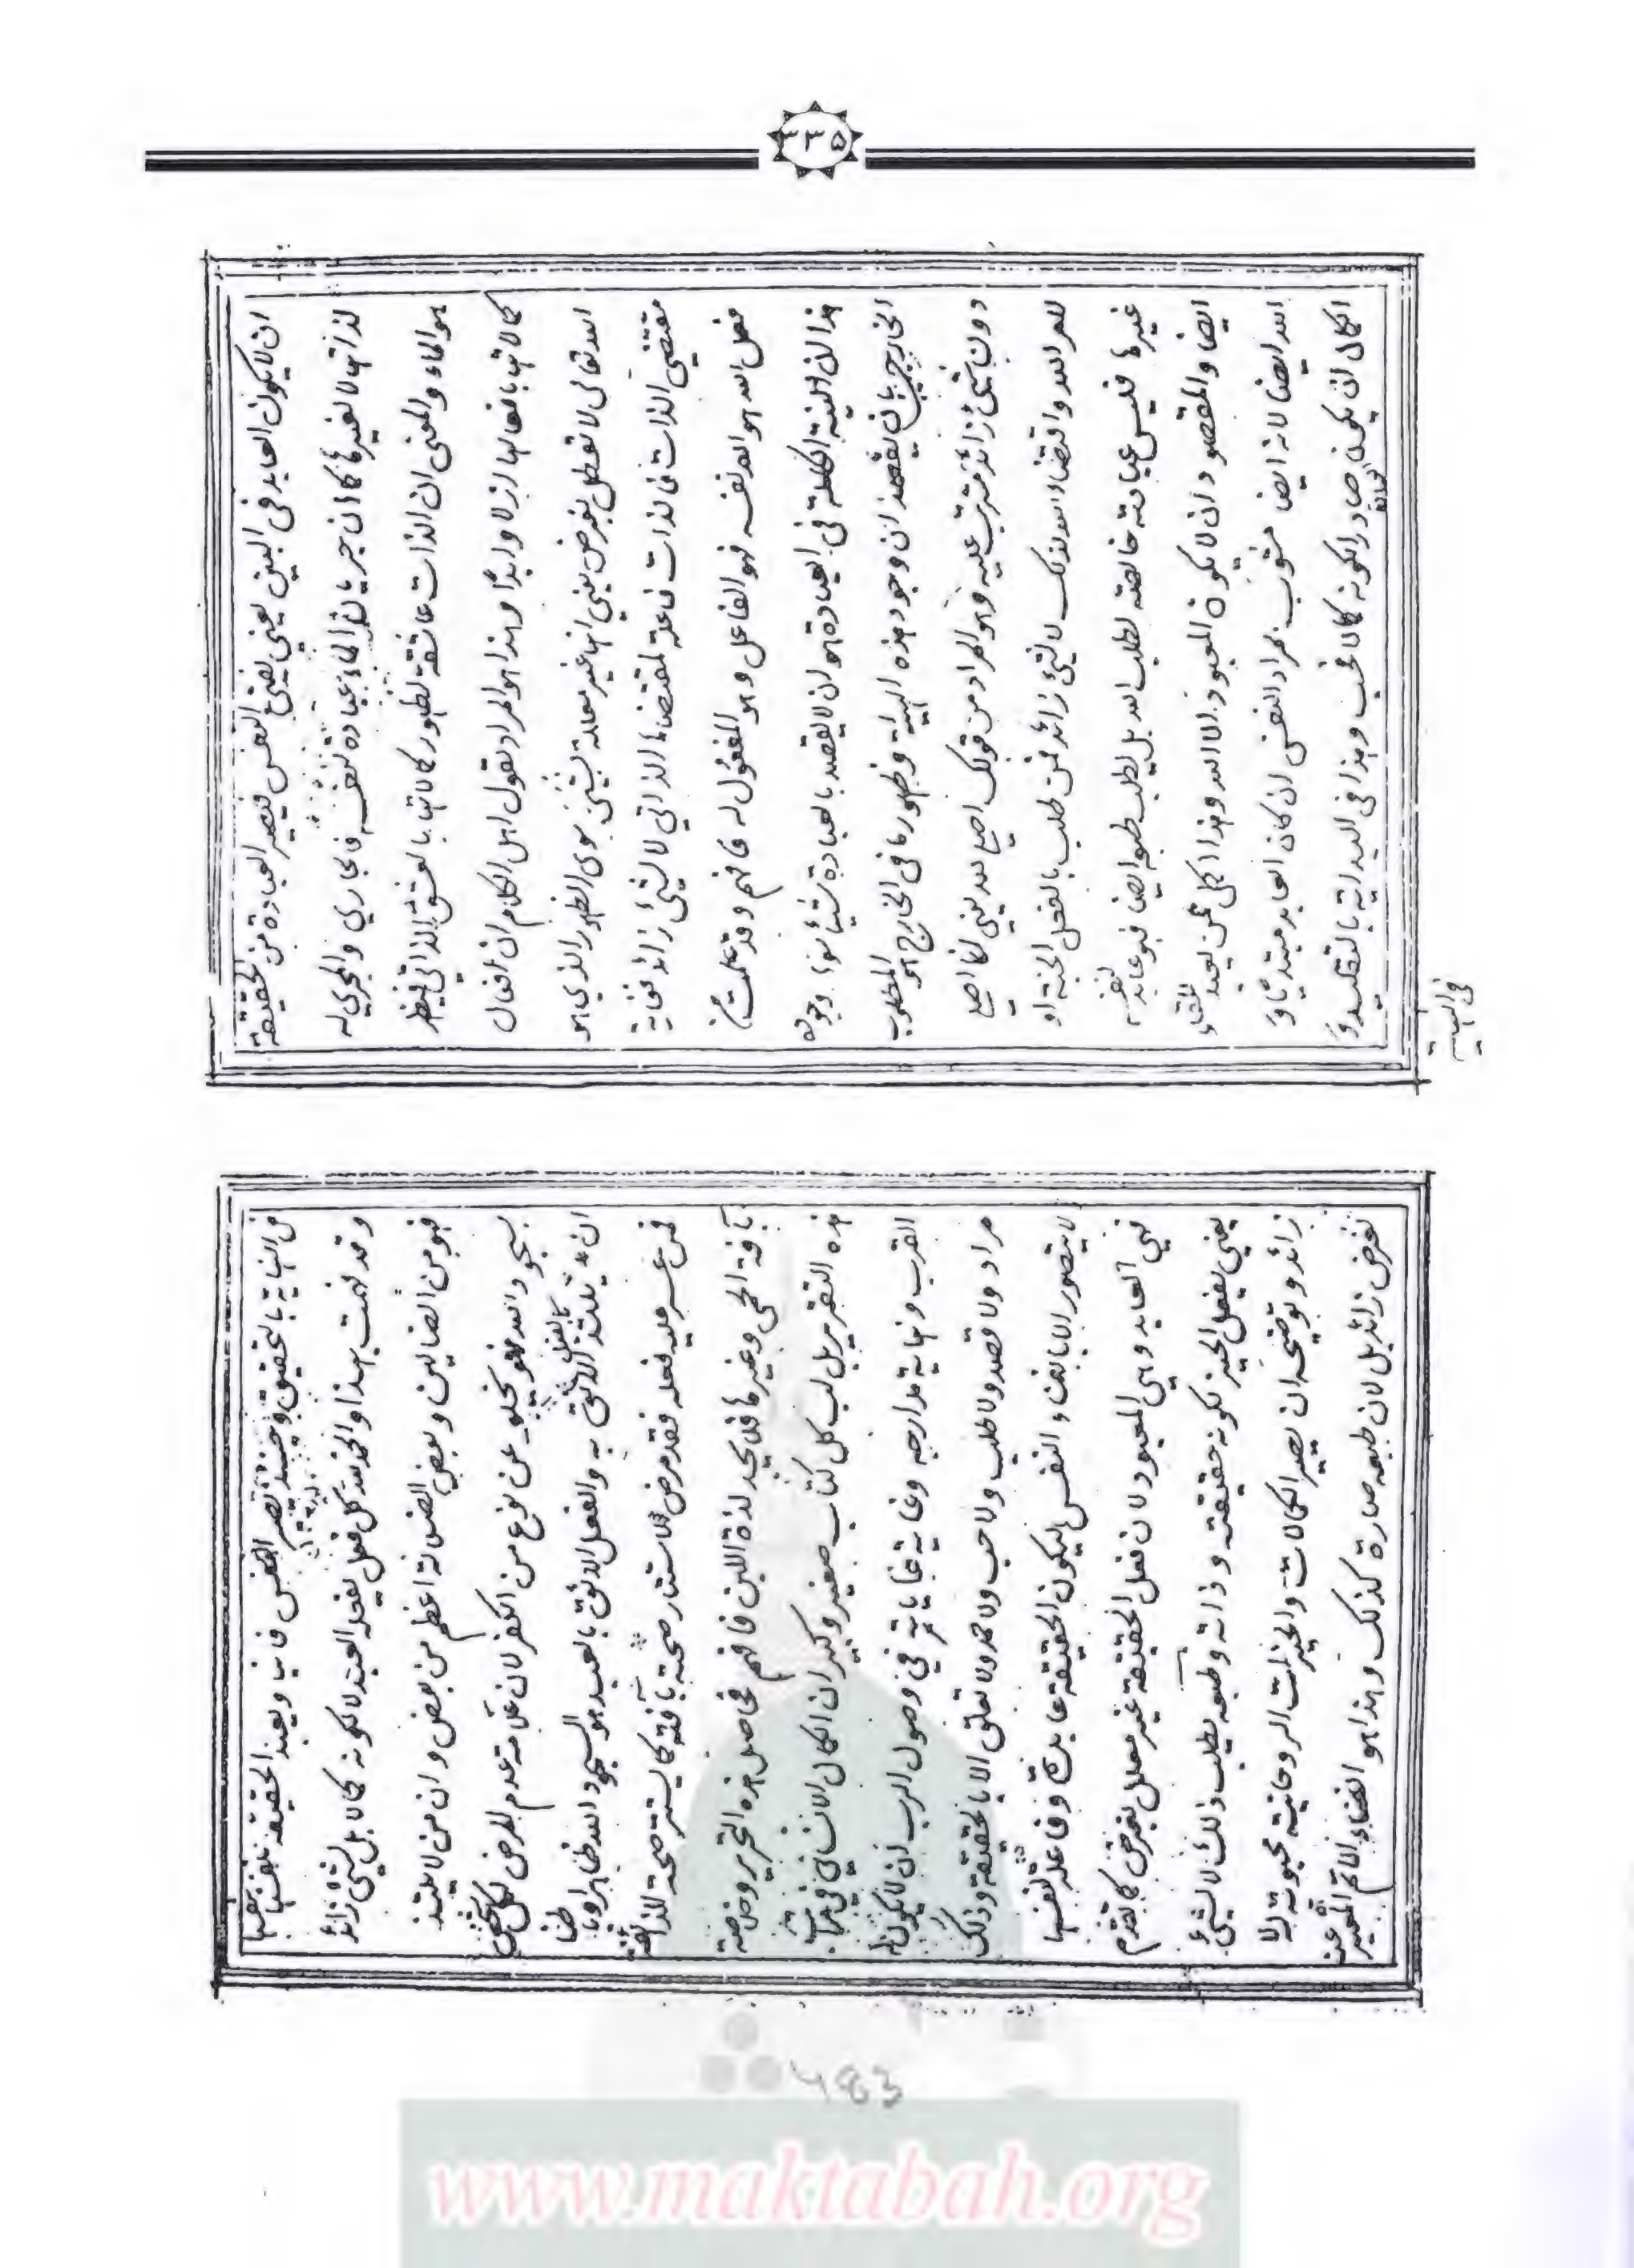 ۳۳۵
ان لا يكون العابد في البين يعني يفنى النفس فيصير العبادة من الحقيقة
لذاتها لا لغيرها كما ان جريان الماء عبادة لنفسه فالجاري والمجري له
هو الماء والمعنى ان الذات عاشقة لظهور كمالاتها بالعشق الذاتي فيظهر
كمالاتها بافعالها ازلا وابدًا وهذا هو المراد بقول اهل الكلام ان افعال
الله تعالى لا تعلل بغرض يعني انها غير معللة بشئ سوى الظهور الذي هو
مقتضى الذات فالذات فاعلة لمقتضاها الذاتي لا لشئ زائد فغاية
فعل الله هو الله نفسه فهو الفاعل وهو المفعول له فافهم وقد علمت من
هذا ان النية الكاملة في العبادة هو ان لا يقصد بالعبادة شيئا سوى وجوده
الخارجي بان يقصد ان وجود هذه الهيئة وظهورها في الخارج هو المطلوب
دون شئ زائد مترتب عليه وهو المراد من قولك اصلي لله يعني انما اصلي
لامر الله واقتضاء الله لذلك لا لشئ زائد فمن طلب بالفعل الجنة او
غيرها فليس عبادته خالصة لطلب الله بل لطلب طبعه ايضا فهو عابد لنفسه
ايضا والمقصود ان لا يكون المعبود الا الله وهذا اكمل ممن يعبد للقاء
الله ايضا لانه ايضا مشوب بمراد النفس ان كان العابد مبتديا و
الكمال ان يكون صادرا لكونه كمالا فحسب وهذا في البداية بالتقليد و
في النهاية
من النهاية بالتحقيق وحينئذ تصير النفس فانيا ويعبد الحقيقة نفسها بنفسها
وقد فهمت بهذا والحمد لله كل فعل يفعله العبد لا لكونه كمالا بل لشئ زائد
فهو من الضالين وبعض الضلالة اعظم من بعض وان من لا يلتذ
بسجود الله فهو لا يخلو عن نوع من الكفر لان علامة عدم المرض لكل شخص
ان يلتذ بالفعل الأليق به والفعل الاليق بالعبد هو السجود لله ظاهرا وباطنا
فمن عسر عليه فعله فقد مرض لاستتار صحته بآفة كما يستتر صحة الذائقة
بآفة الحمى وغيرها فلا يجد لذة اللبن فافهم فحاصل هذه التحرير وخلاصة
هذه التقرير بل لب كل كتاب صغير وكبير ان الكمال الانساني في مراتب
القرب ونهاية مدارجه وغاية غاياته في وصول الرب ان لا يكون له
مراد ولا قصد ولا طلب ولا حب ولا حمد ولا تعلق الا بالحقيقة وذلك
لا يتصور الا بافناء النفس ليكون الحقيقة عابدة وفاعلة لنفسها
فهي العابد وهي المعبود لان فعل الحقيقة غير معلل بغرض كما تقدم
يعني يفعل الخير لكونه حقيقته وذاته وطبعه يطلب ذلك لا لشئ
زائد وتوضيحه ان يصير الكمالات والخيرات الروحانية محبوبة له لا
لغرض زائد بل لان طبعه صارة كذلك وهذا هو الفناء الاتم المعبر عنه
483
www.maktabah.org